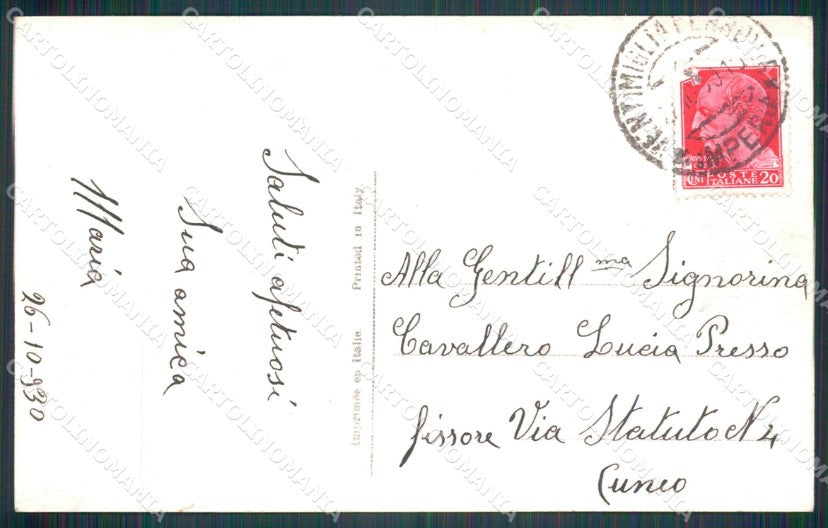 Saluti afetuosi
Sua amica
Maria
26-10-930
Imprimée en Italie. Printed in Italy.
VENTIMIGLIA
IMPERIA
POSTE
ITALIANE
CENT 20
Alla Gentill ma Signorina
Cavallero Lucia Presso
fissore Via Statuto N 4
Cuneo
CARTOLINOMANIA